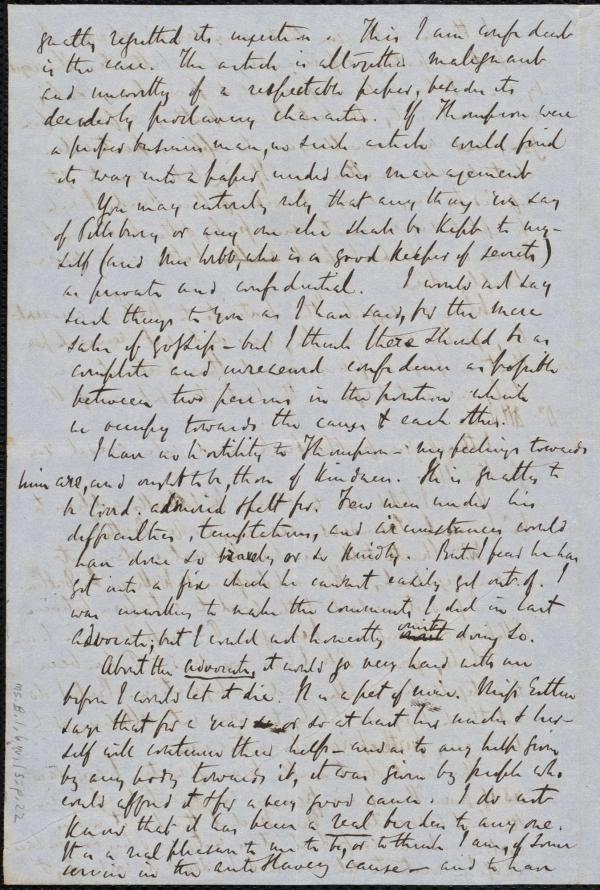 greatly regretted its insertion. This I am confident
is the case. The article is altogether malignant
and unworthy of a respectable paper, besides its
decidedly proslavery character. If Thompson were
a proper business man, no such article could find
its way into a paper under his management
You may entirely rely that any thing you say
of Pillsbury or any one else shall be kept to my-
self (and Mrs Webb, who is a good keeper of secrets)
as private and confidential. I would not say
such things to you as I have said, for the mere
sake of gossip - but I think there should be as
complete and unreserved confidence as possible
between two persons in the position which
we occupy towards the cause & each other.
I have no hostility to Thompson - my feelings towards
him are, and ought to be, those of kindness. He is greatly to
be loved, admired & felt for. Few men under his
difficulties, temptations, and circumstances would
have done so bravely or so kindly. But I fear he has
got into a fix which he cannot easily get out of. I
was unwilling to make the comments I did in last
Advocate, but I could not honestly omit doing so.
About the Advocate, it would go very hard with me
before I would let it die. It is a pet of mine. Miss Estlin
says that for a year or so at least her uncle & her-
self will continue their help - and as to any help given
by any body towards it, it was given by people who
could afford it & for a very good cause. I do not
know that it has been a real burden to any one.
It is a real pleasure to me to be, or to think I am, of some
service in the anti Slavery cause - and to have
Ms.B.1.6 p.22